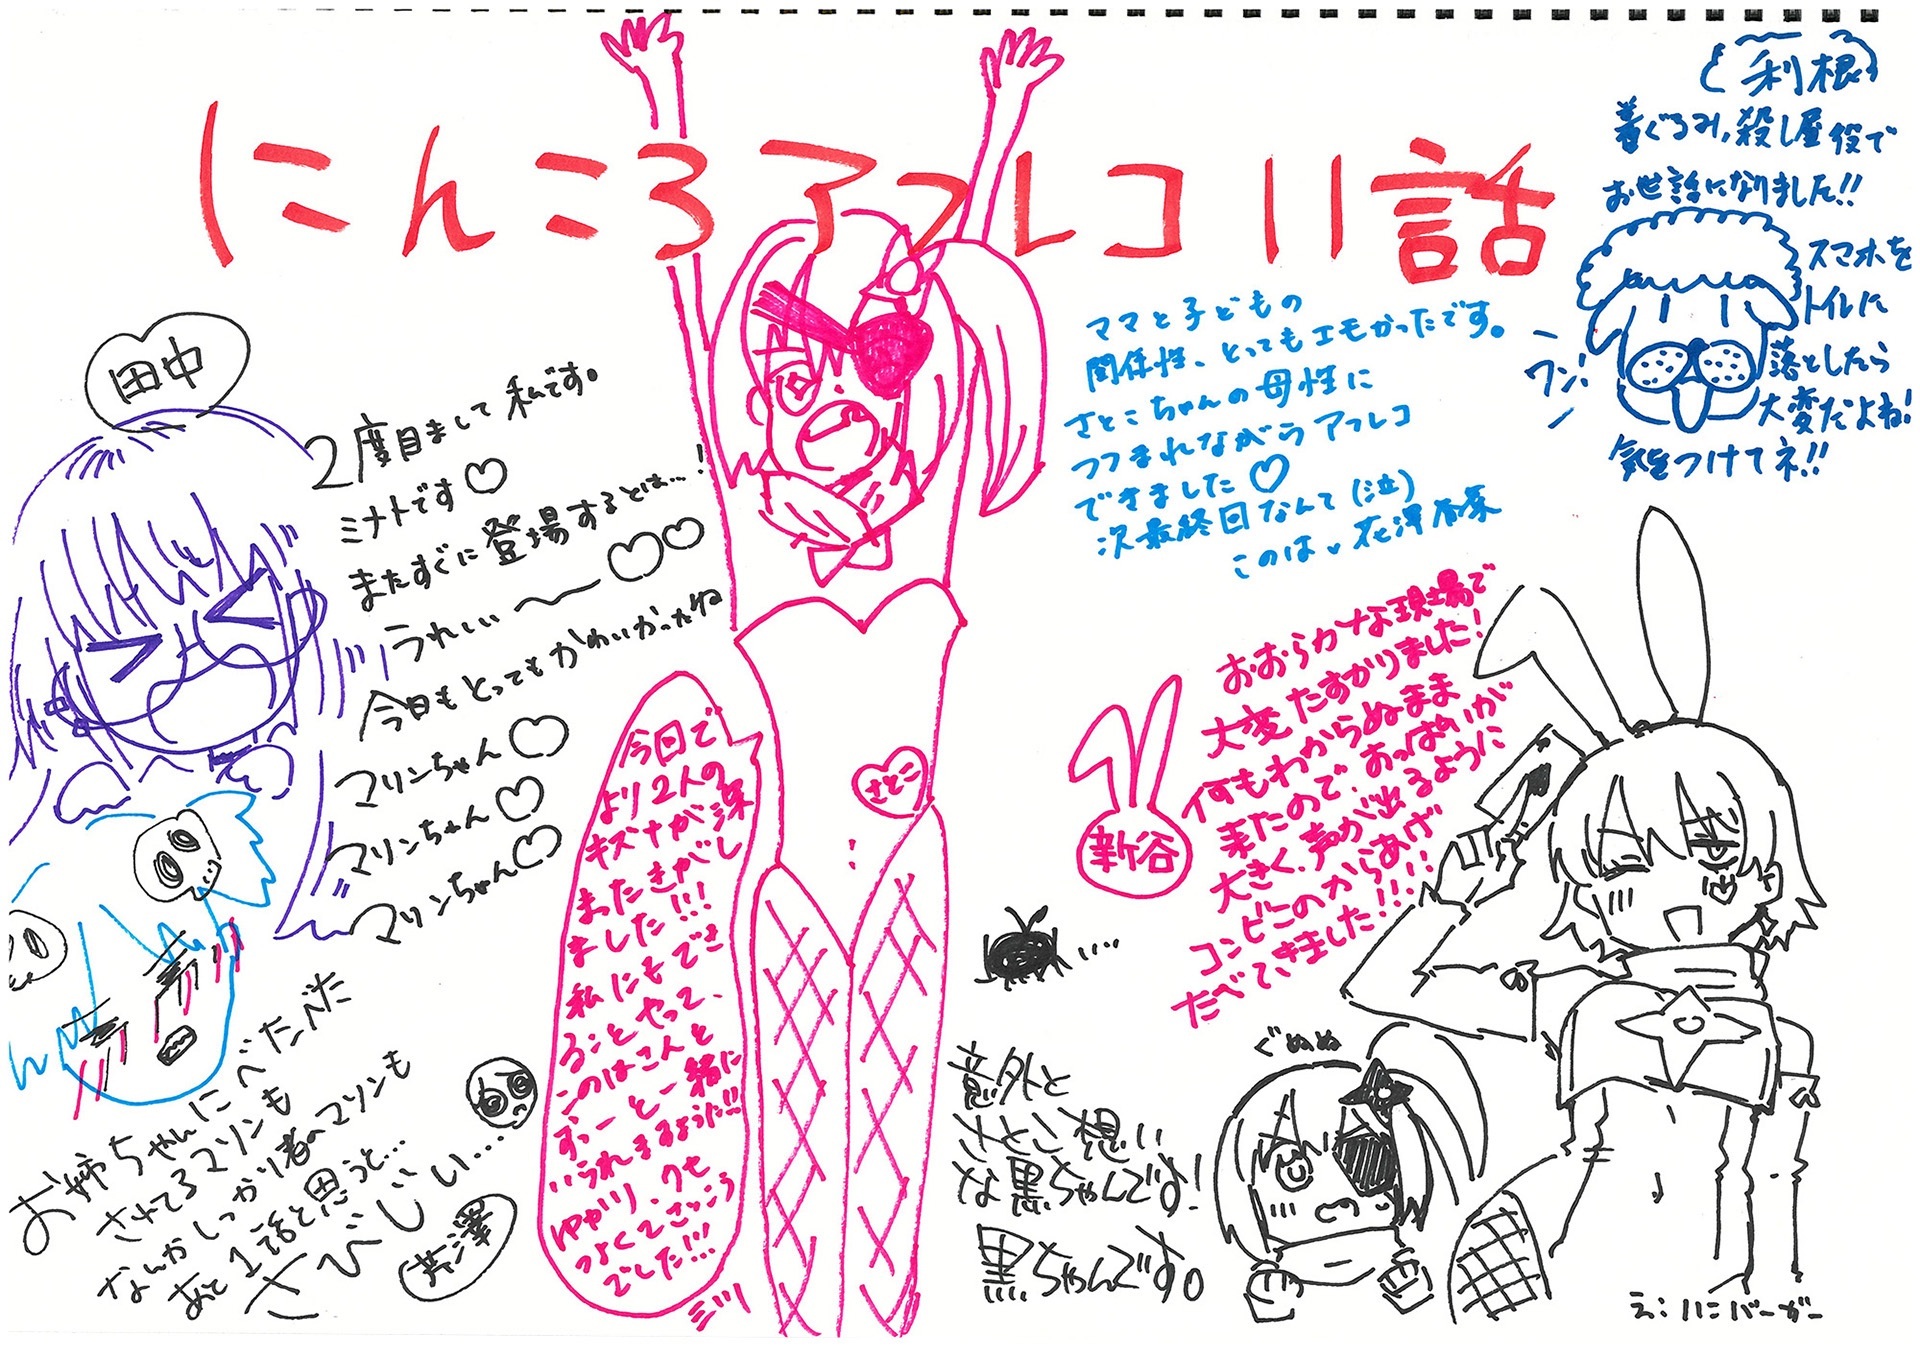 にんころアフレコ11話
利根
着ぐるみ,殺し屋役で
お世話になりました!!
スマホを
トイレに
落としたら
大変だよね!
気をつけてネ!!
ワン!
田中
2度目まして 私です。
ミナトです♡
またすぐに登場するとは…!
うれしい〜♡♡
今日もとってもかわいかったね
マリンちゃん♡
マリンちゃん♡
マリンちゃん♡
ママと子どもの
関係性、とってもエモかったです。
さとこちゃんの母性に
つつまれながらアフレコ
できました♡
次最終回なんて(泣)
このは♥ 花澤香菜
新谷
おおらかな現場で
大変たすかりました!
何もわからぬまま
来たので、おっぱいが
大きく、声が出るように
コンビニのからあげ
たべてきました!!!!
さとこ
今回で
より2人の
キズナが深
まったきがし
ました!!!
私にもでき
ることやって、
このはさんと
ずーっと一緒に
いられますように!!!
ゆかり、クセ
つよくてさいこう
でした!!!
ミリ
お姉ちゃんにべたべた
させてるマリンも
なんかしっかり者のマリンも
あと1話と思うと…
さびじい…
芹澤
意外と
さとこ想い
な黒ちゃんです!
黒ちゃんです。
ぐぬぬ
え:ハニバーガー